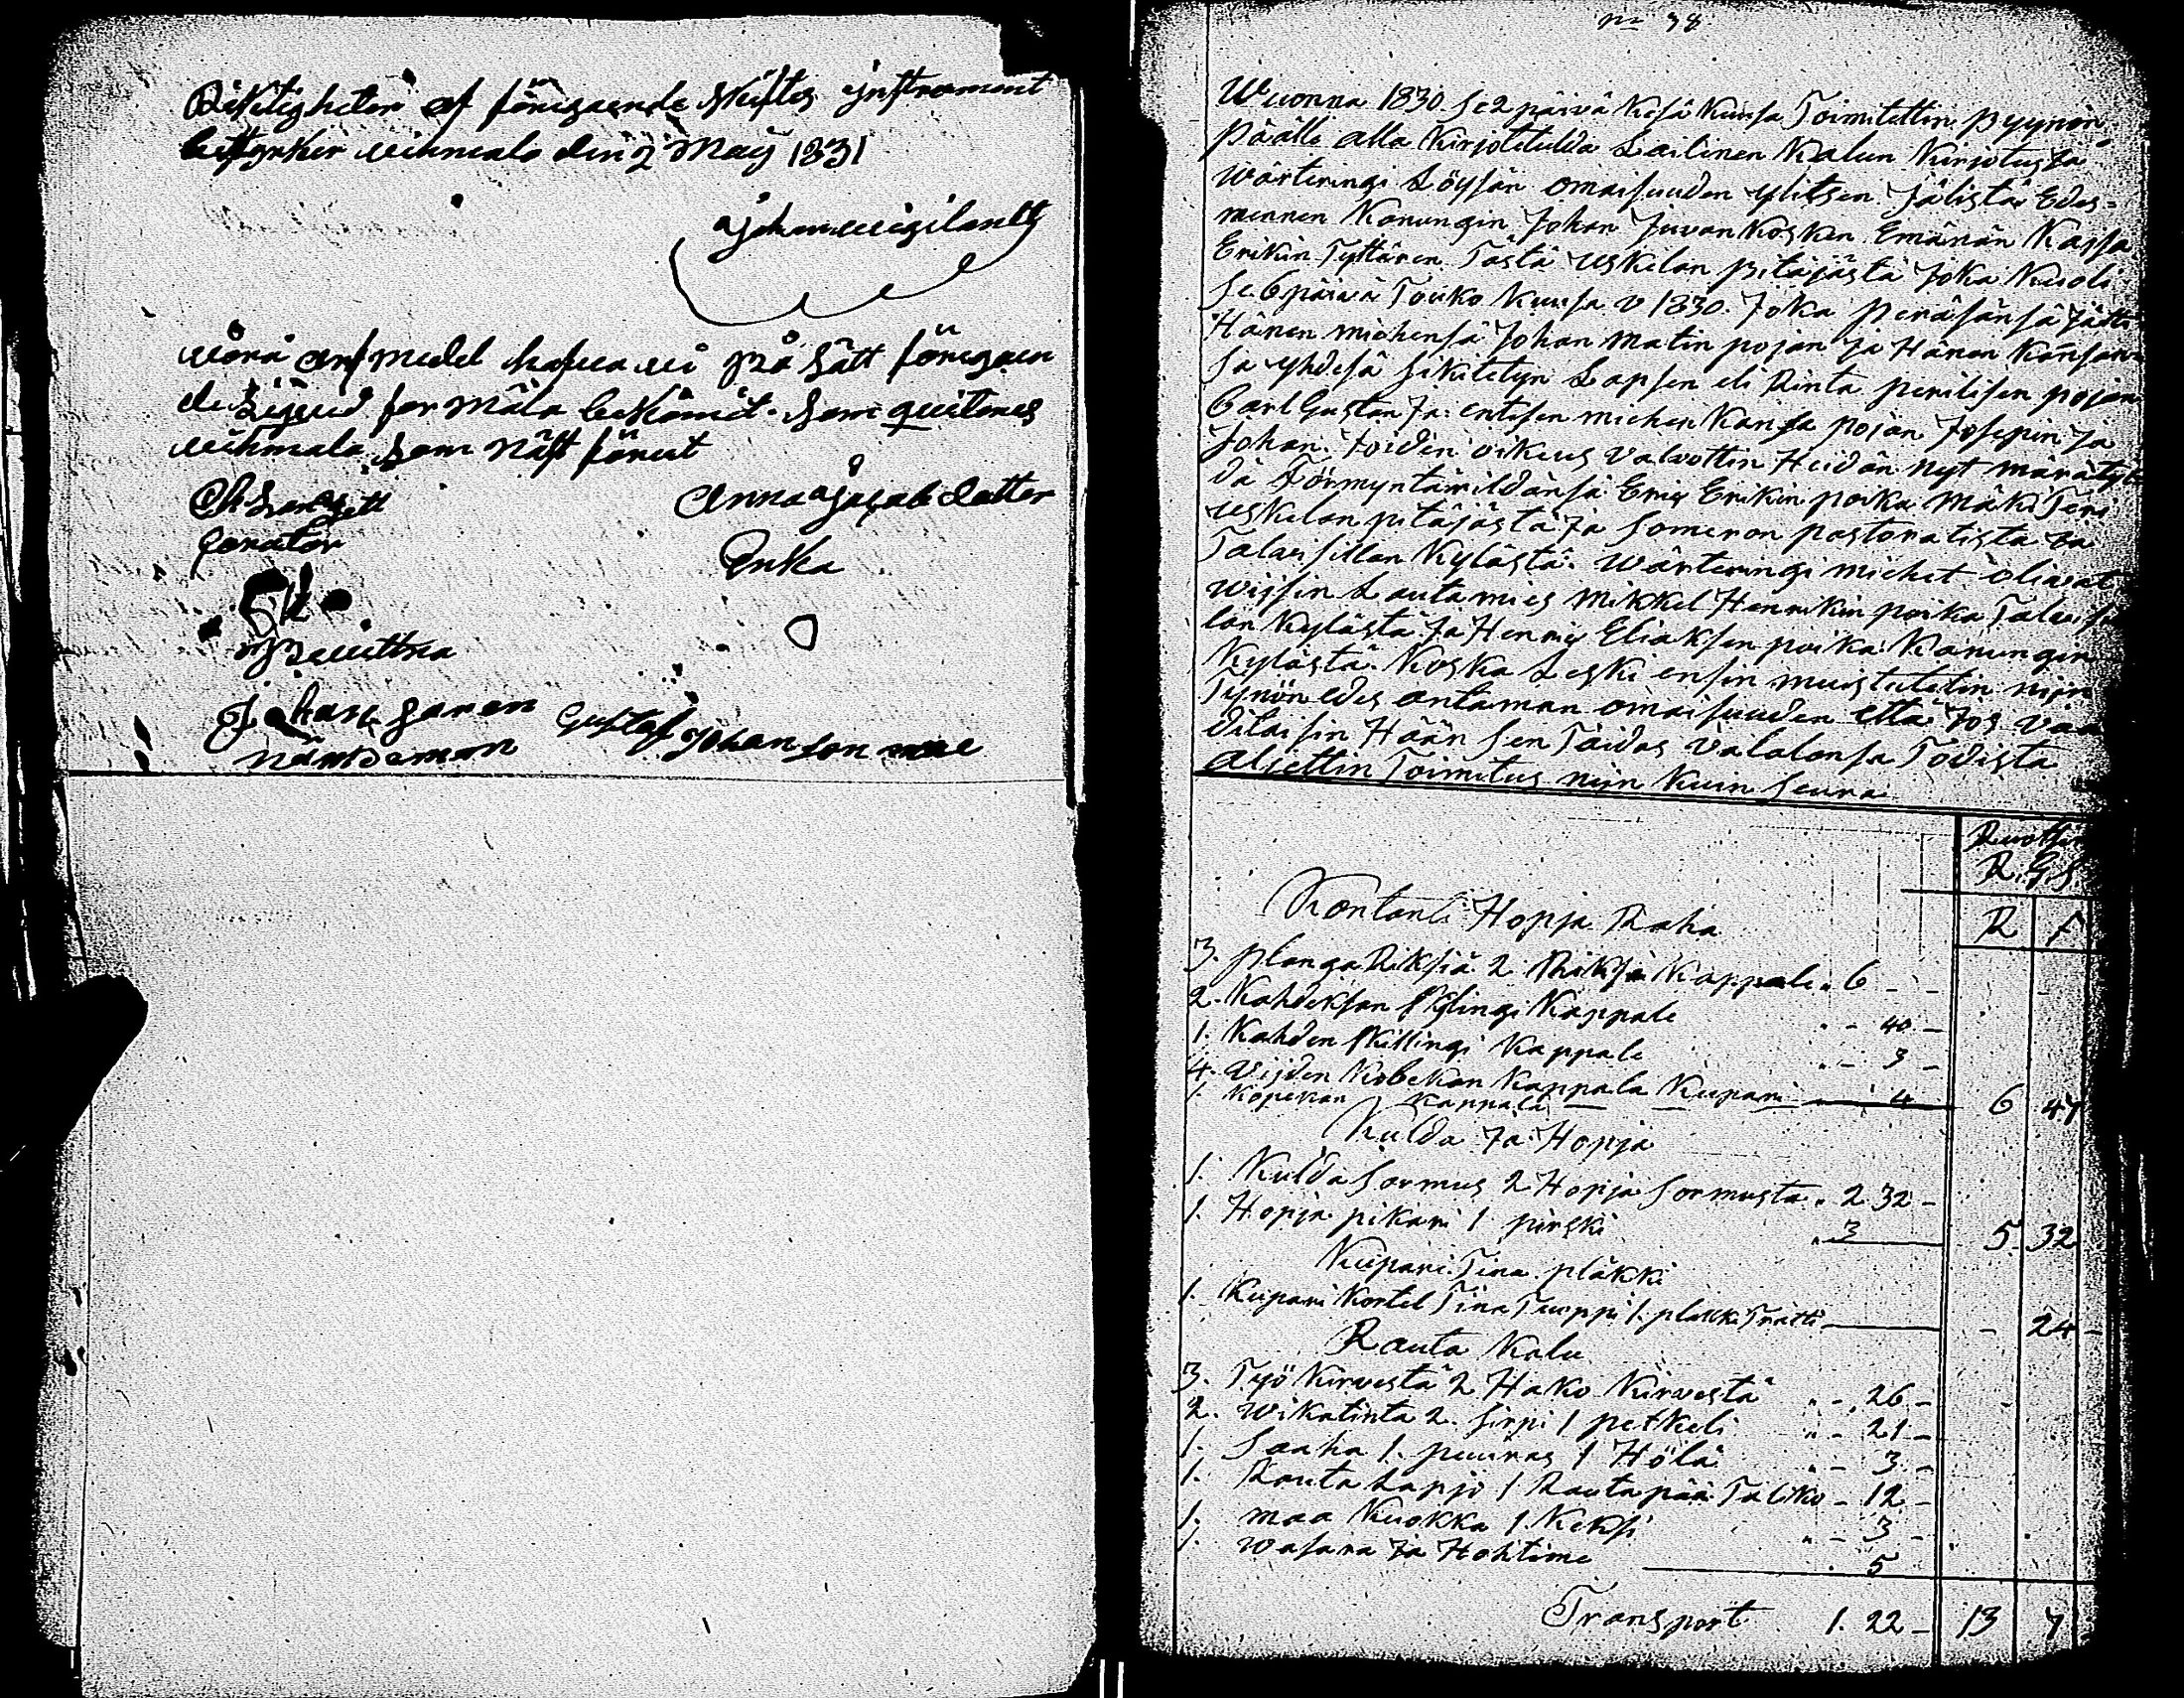 Riktigheten afföregaende skiftes instrument
betyrker wihmalo den 2 May 1831
Johan Wigilantz
wåra arf medel hafwa wi på sätt föregaen
de Liqvid for mäla bekåmit. som quiteras
wihmalo som näst förut
Anna Jacobs dotter
Curator
Enka
Bewittna
Johan
nämdeman Gustaf Johan son
No 38
Wuonna 1830 se 2 päivä Kesä Kuusa Toimitettin Pyynön
Päälle alla Kirjoitetulda Laillinen Kalun Kirjotus Ja
Wärteringi Löysän omaisuuden ylitsen Jälistä Edes=
mennen Konungin Johan Juvankosken Emänän Kaisa
Erikin Tyttären Tästä Uskelan Pitäjästä Joka Kuoli
se 6 päivä Touko Kuusa v 1830. Joka Peräsänsä Jätti
Hänen miehensä Johan Matin pojan Ja Hänen Kansan=
sa yhdesä sikitetyn Lapsen eli Rinta perilisen pojan
Carl Gustan Ja: entisen miehen Kansa pojan Josepin Ja
Johan. Joiden oikeus valvottin Heidän nyt märätyl
dä Förmyntärildänsä Eric Erikin poika Mäki Teri
Uskelan pitäjästä Ja Someron pastoratista Ja
Talvisillan Kylästä. Wärteringi miehet oliwat
wissin Lautamies Mikkel Henrikin poika Talvisi
lan Kylästä Ja Henric Eliaksen poika Kanungin
Kylästä. Koska Leski ensin muistutetin nijn
Tynön edes antaman omaisuuden että Jos vaa
ditaisin Hään sen Taidas valalonsa Todista
Aljettin Toimitus nijn kuin seura
Ruotsin
R. G. S
Kontanti Hopja Raha R f
3. plangaRiksiä 2 Riksin Kappale . 6 - -
2. Kahdeksan skilingi Kappale . - 40 -
1. Kahden skillingi Kappale . - 3 -
4. Vijden Kobekan Kappala Kupari
1. Kopekan Kappala 4 6 47
Kulda Ja Hopja
1. Kulda Sormus 2 Hopja Sormusta . 2 32 -
1. Hopja pikari 1 pirski . 3 5 32
Kupari Tina pläkki
1. Kupari Kortel Tina Tuoppi 1. plakki Tratti - 24 -
Rauta Kalu
3. Työ Kirvestä 2 Hako Kirvestä . - 26 -
2. Wikatinta 2. sirpi 1 petkeli . - 21 -
1. Saaha 1. puuras 1 Hölä . - 3 -
1. Rauta Lapjo 1 Rautapää Taliko - 12 -
1. maa Kuokka 1 Keksi . - 3 -
1. wasara Ja Hohtime . 5
Transport 1. 22 - 13 7